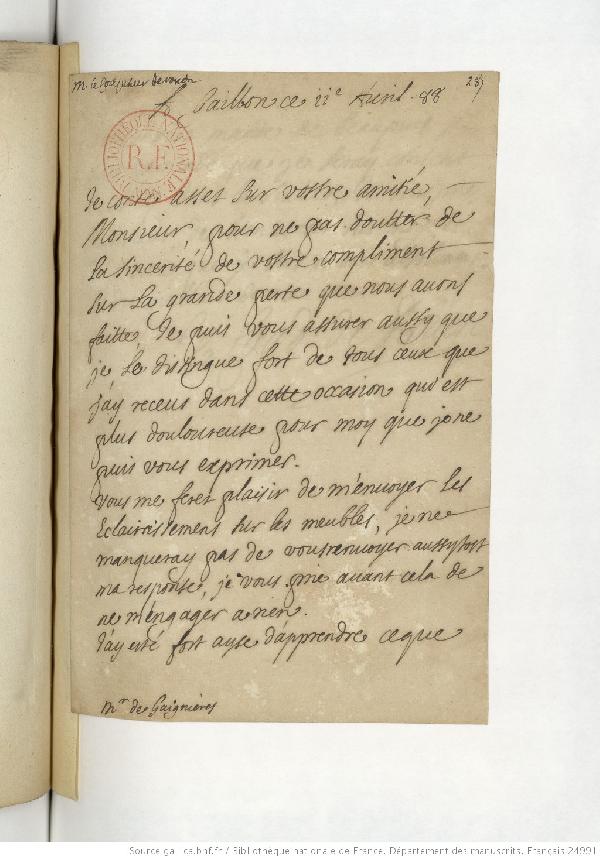 M. le Coadjuteur de rouen
28
A Gaillon ce 11e Auril. 88
BIBLIOTHEQUE NATIONALE
R.F.
MSS
Je conte asset sur vostre amitié,
Monsieur, pour ne pas doutter de
La sincerité de vostre compliment
sur La grande perte que nous auons
faitte, Je puis vous assurer aussy que
je Le distingue fort de tous ceux que
J'ay receus dans cette occasion qui est
plus douloureuse pour moy que je ne
puis vous exprimer.
Vous me feret plaisir de m'enuoyer Les
Eclaircissemens sur les meubles, je ne
manqueray pas de vous renuoyer aussytost
ma response, je vous prie auant cela de
ne m'engager a rien.
J'ay esté fort ayse d'apprendre ce que
Mr de Gaignieres
Source gallica.bnf.fr / Bibliothèque nationale de France. Département des manuscrits. Français 24991